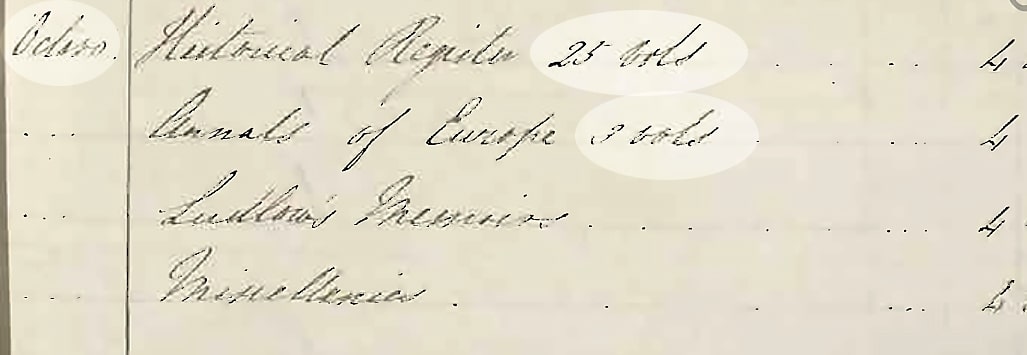 Octavo. Historical Register 25 vols . . . . . 4.
... Annals of Europe 3 vols . . ... 4
... Ludlow's Memoirs . . . . . ... 4
... Miscellanies . . . ... 4.